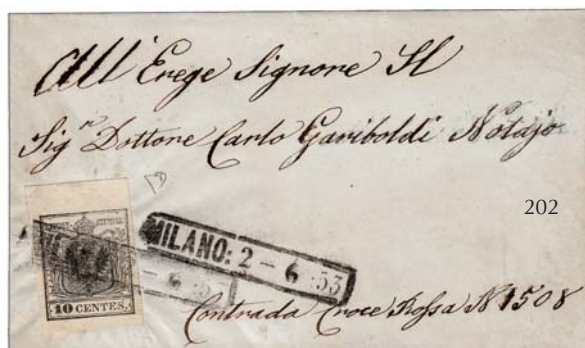 All' Erege Signore Il
Sig.r Dottore Carlo Gariboldi Notajo
202
MILANO: 2 - 6 .53
10 CENTES.
Contrada Croce Rossa N 1508